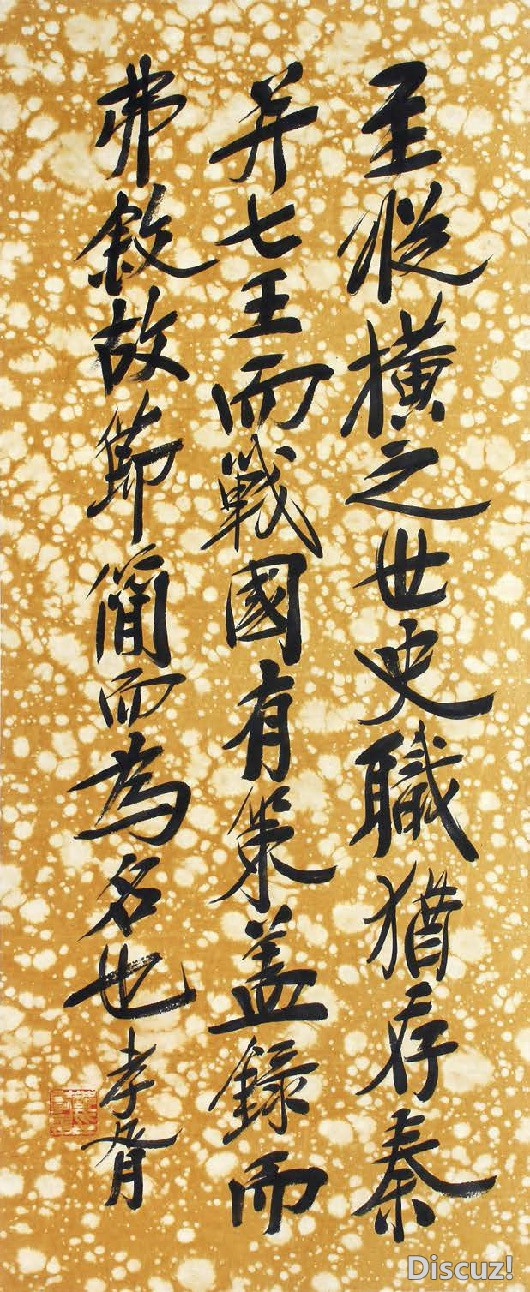 至從橫之世史職猶存秦
并七王而戰國有策蓋錄而
弗敘故節簡而為名也孝胥
Discuz!